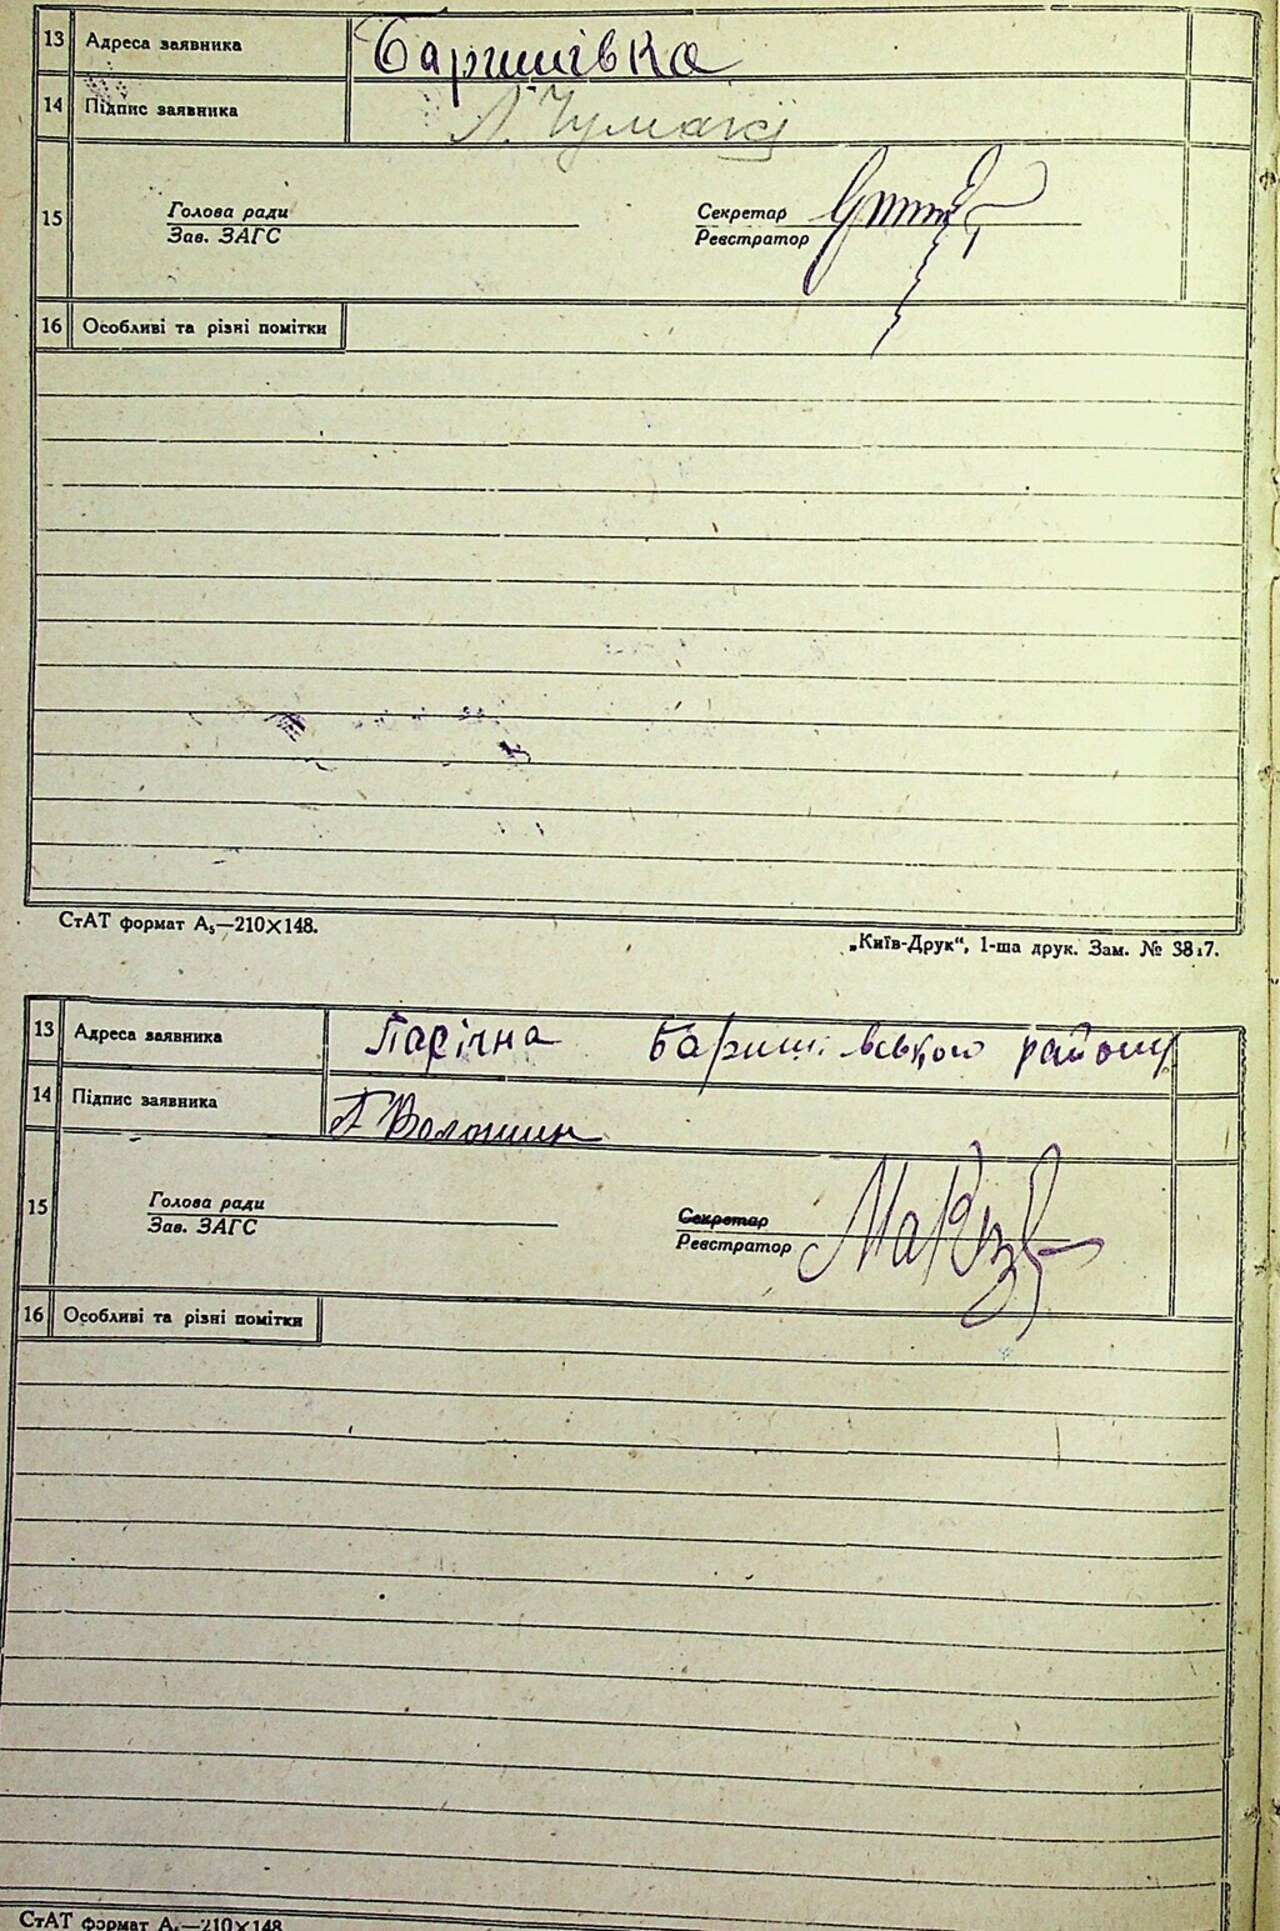 13 Адреса заявника Баришівка
14 Підпис заявника Л. Чумак
15 Голова ради Секретар
Зав. ЗАГС Реєстратор
16 Особливі та різні помітки
СтАТ формат А₅—210×148.
„Київ-Друк“, 1-ша друк. Зам. № 3817.
13 Адреса заявника Пасічна Баришівського району
14 Підпис заявника Волошин
15 Голова ради Секретар
Зав. ЗАГС Реєстратор
16 Особливі та різні помітки
СтАТ формат А₅—210×148